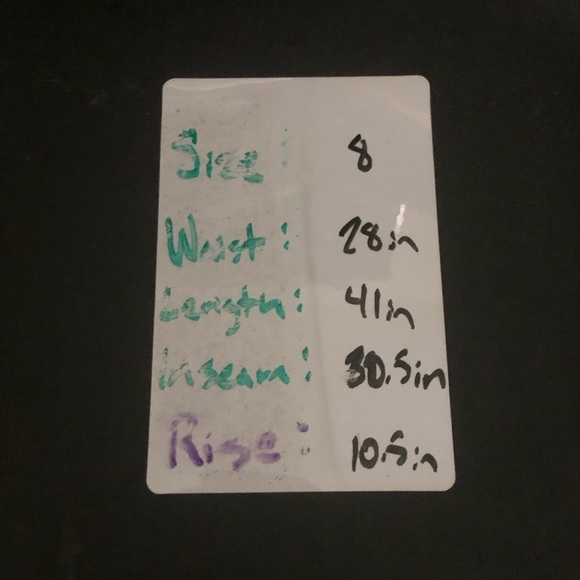 Size: 8
Waist: 28in
Length: 41in
Inseam: 30.5in
Rise: 10.5in